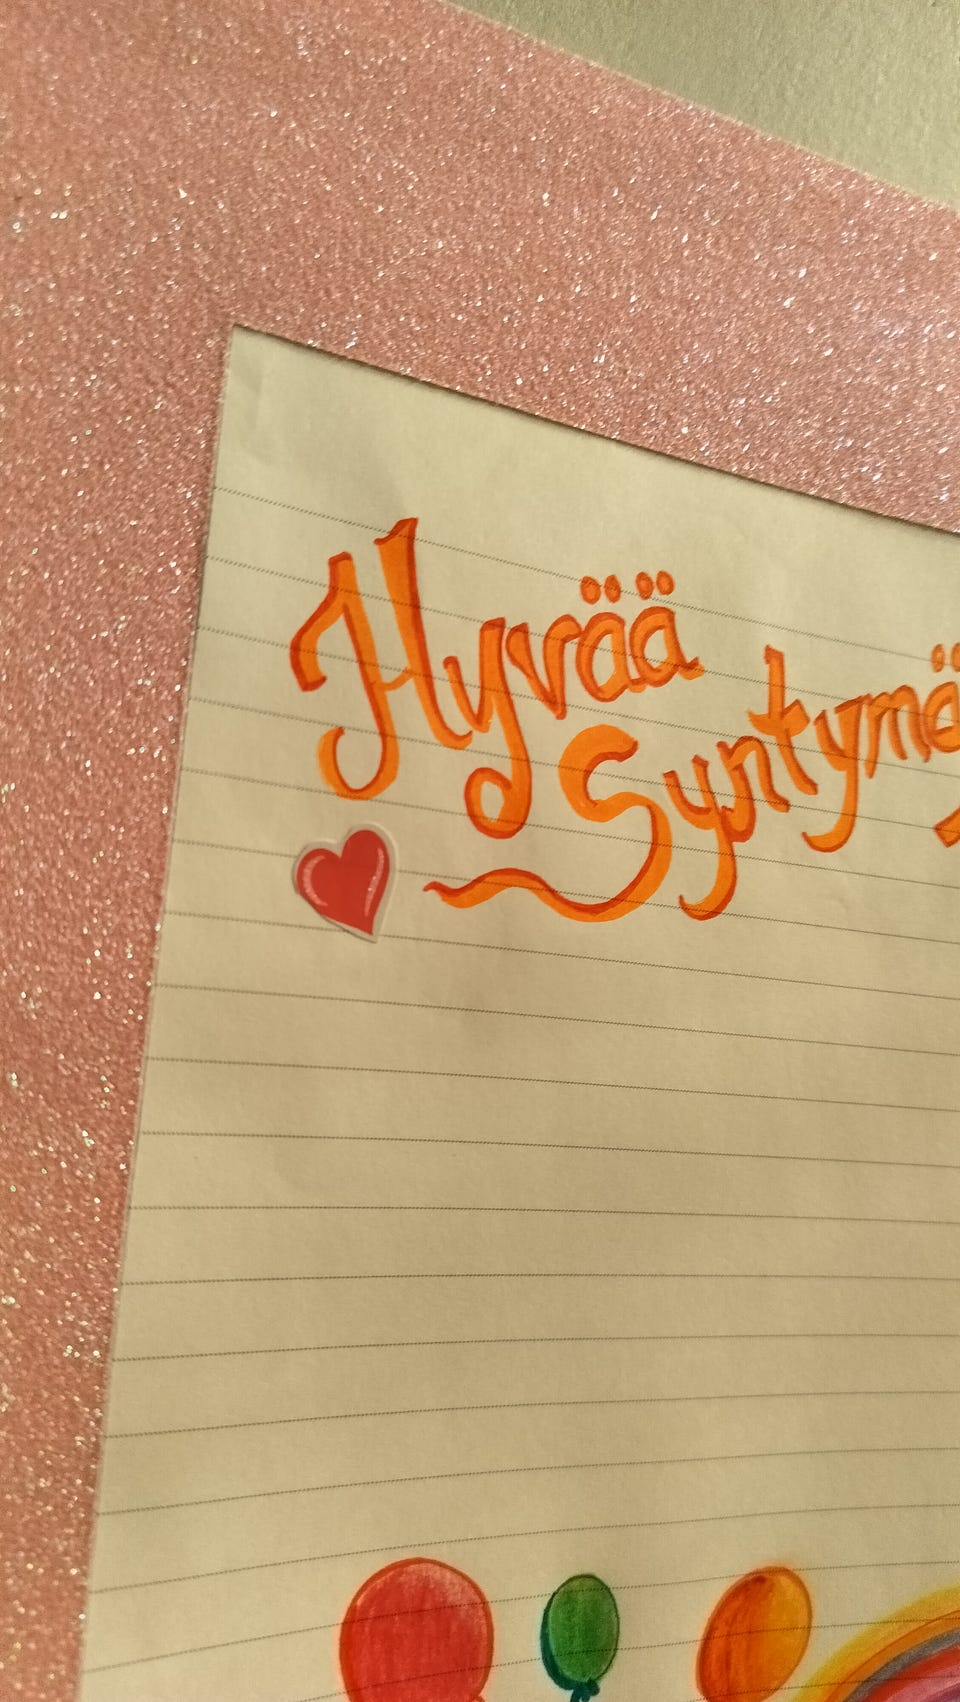 Hyvää
Syntymä